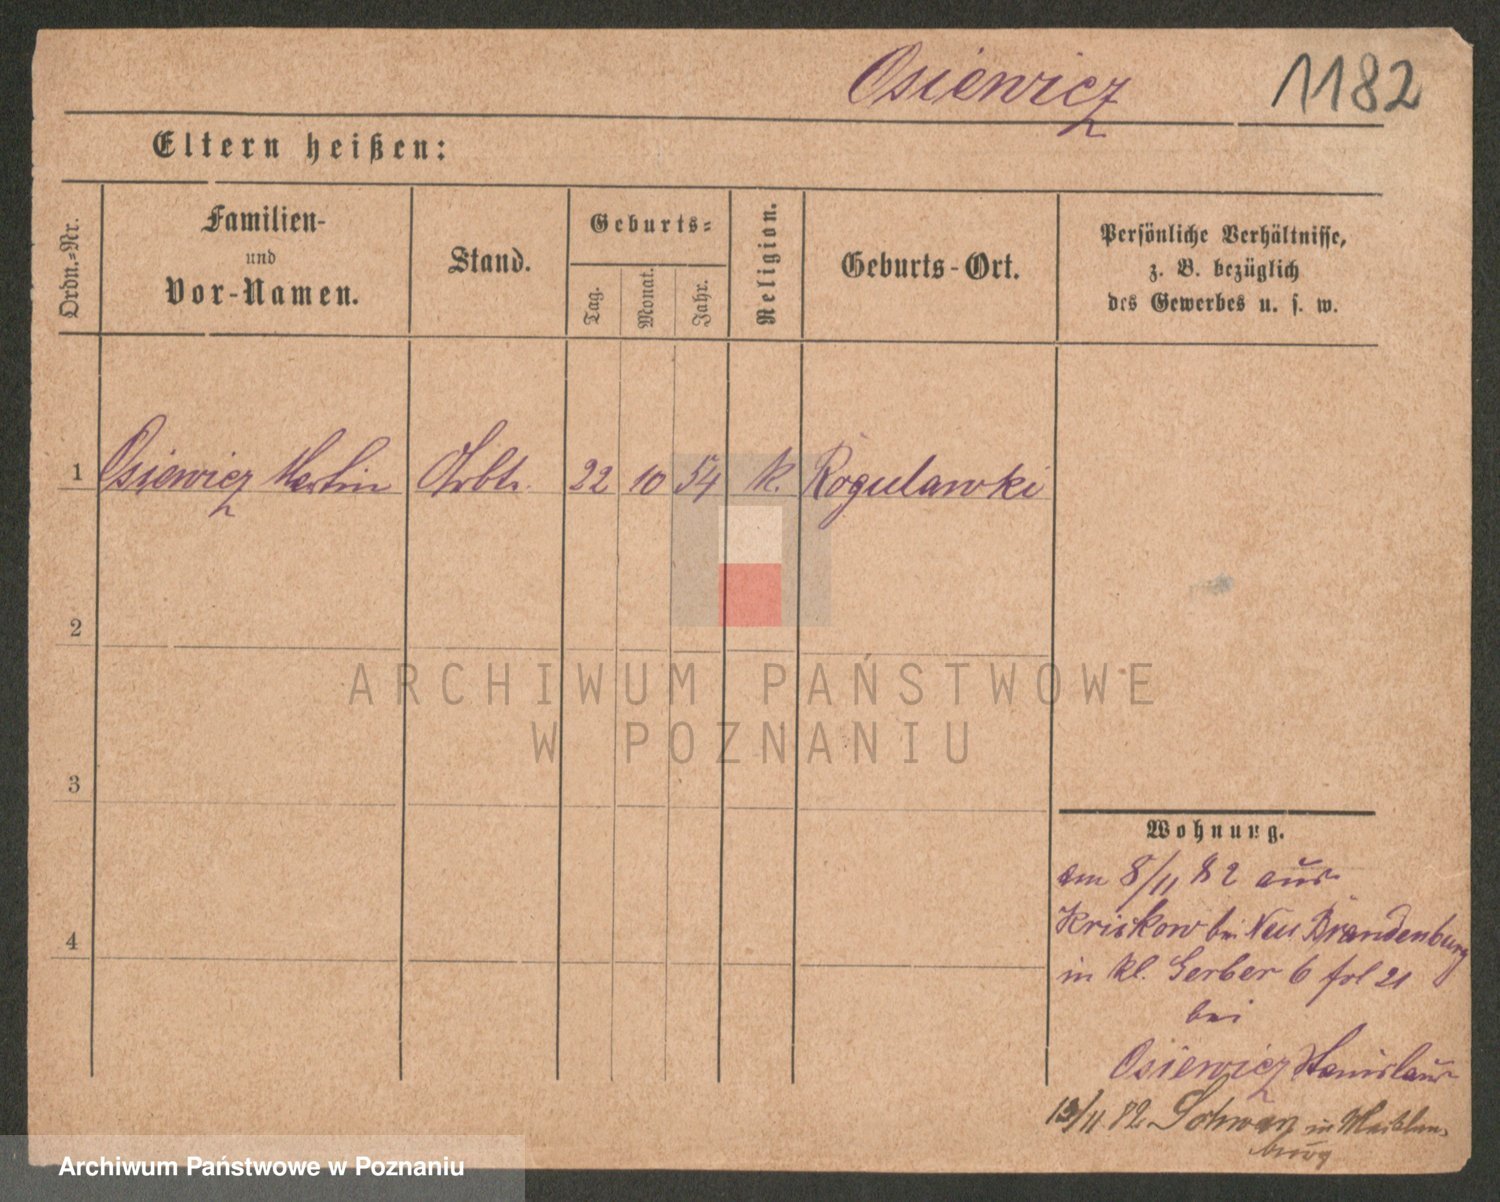 Osiewicz 1182
Eltern heißen:
Ordn.-Nr.
Familien-
und
Vor-Namen.
Stand.
Geburts-
Tag.
Monat.
Jahr.
Religion.
Geburts-Ort.
Persönliche Verhältnisse,
z. B. bezüglich
des Gewerbes u. s. w.
1 Osiewicz Martin Arbtr. 22 10 54 k. Rogulawki
2
3
4
ARCHIWUM PAŃSTWOWE
W POZNANIU
Wohnung.
am 8/11 82 aus
Kriskow bei Neu Brandenburg
in kl. Gerber 6 frl 21
bei
Osiewicz Stanislaus
13/11 82 Schwan in Mecklen-
burg
Archiwum Państwowe w Poznaniu